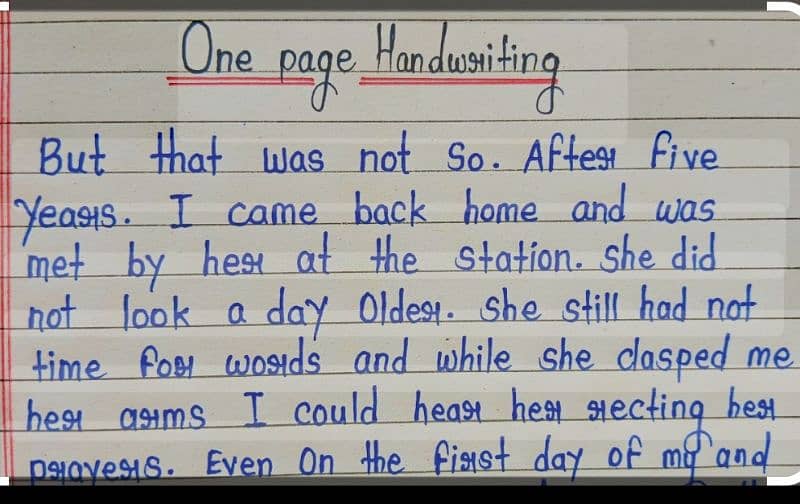 One page Handwriting
But that was not so. After five
Years. I came back home and was
met by her at the station. She did
not look a day Older. She still had not
time for words and while she clasped me
her arms I could hear her recting her
prayers. Even On the first day of my and